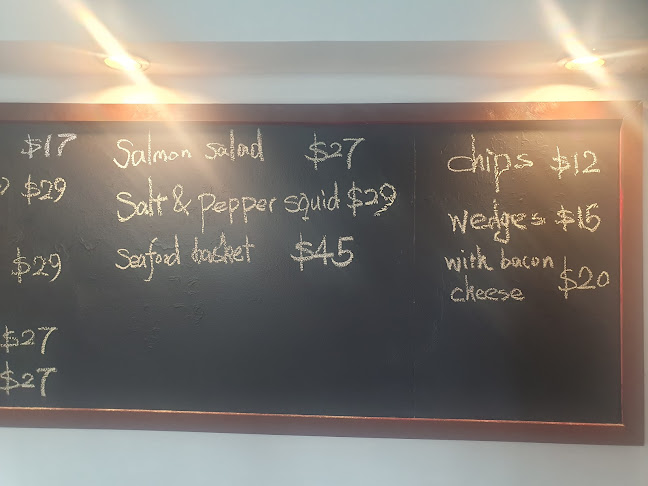 $17
$29
$29
$27
$27
Salmon salad $27
Salt & Pepper squid $29
Seafood basket $45
chips $12
Wedges $15
with bacon
cheese $20